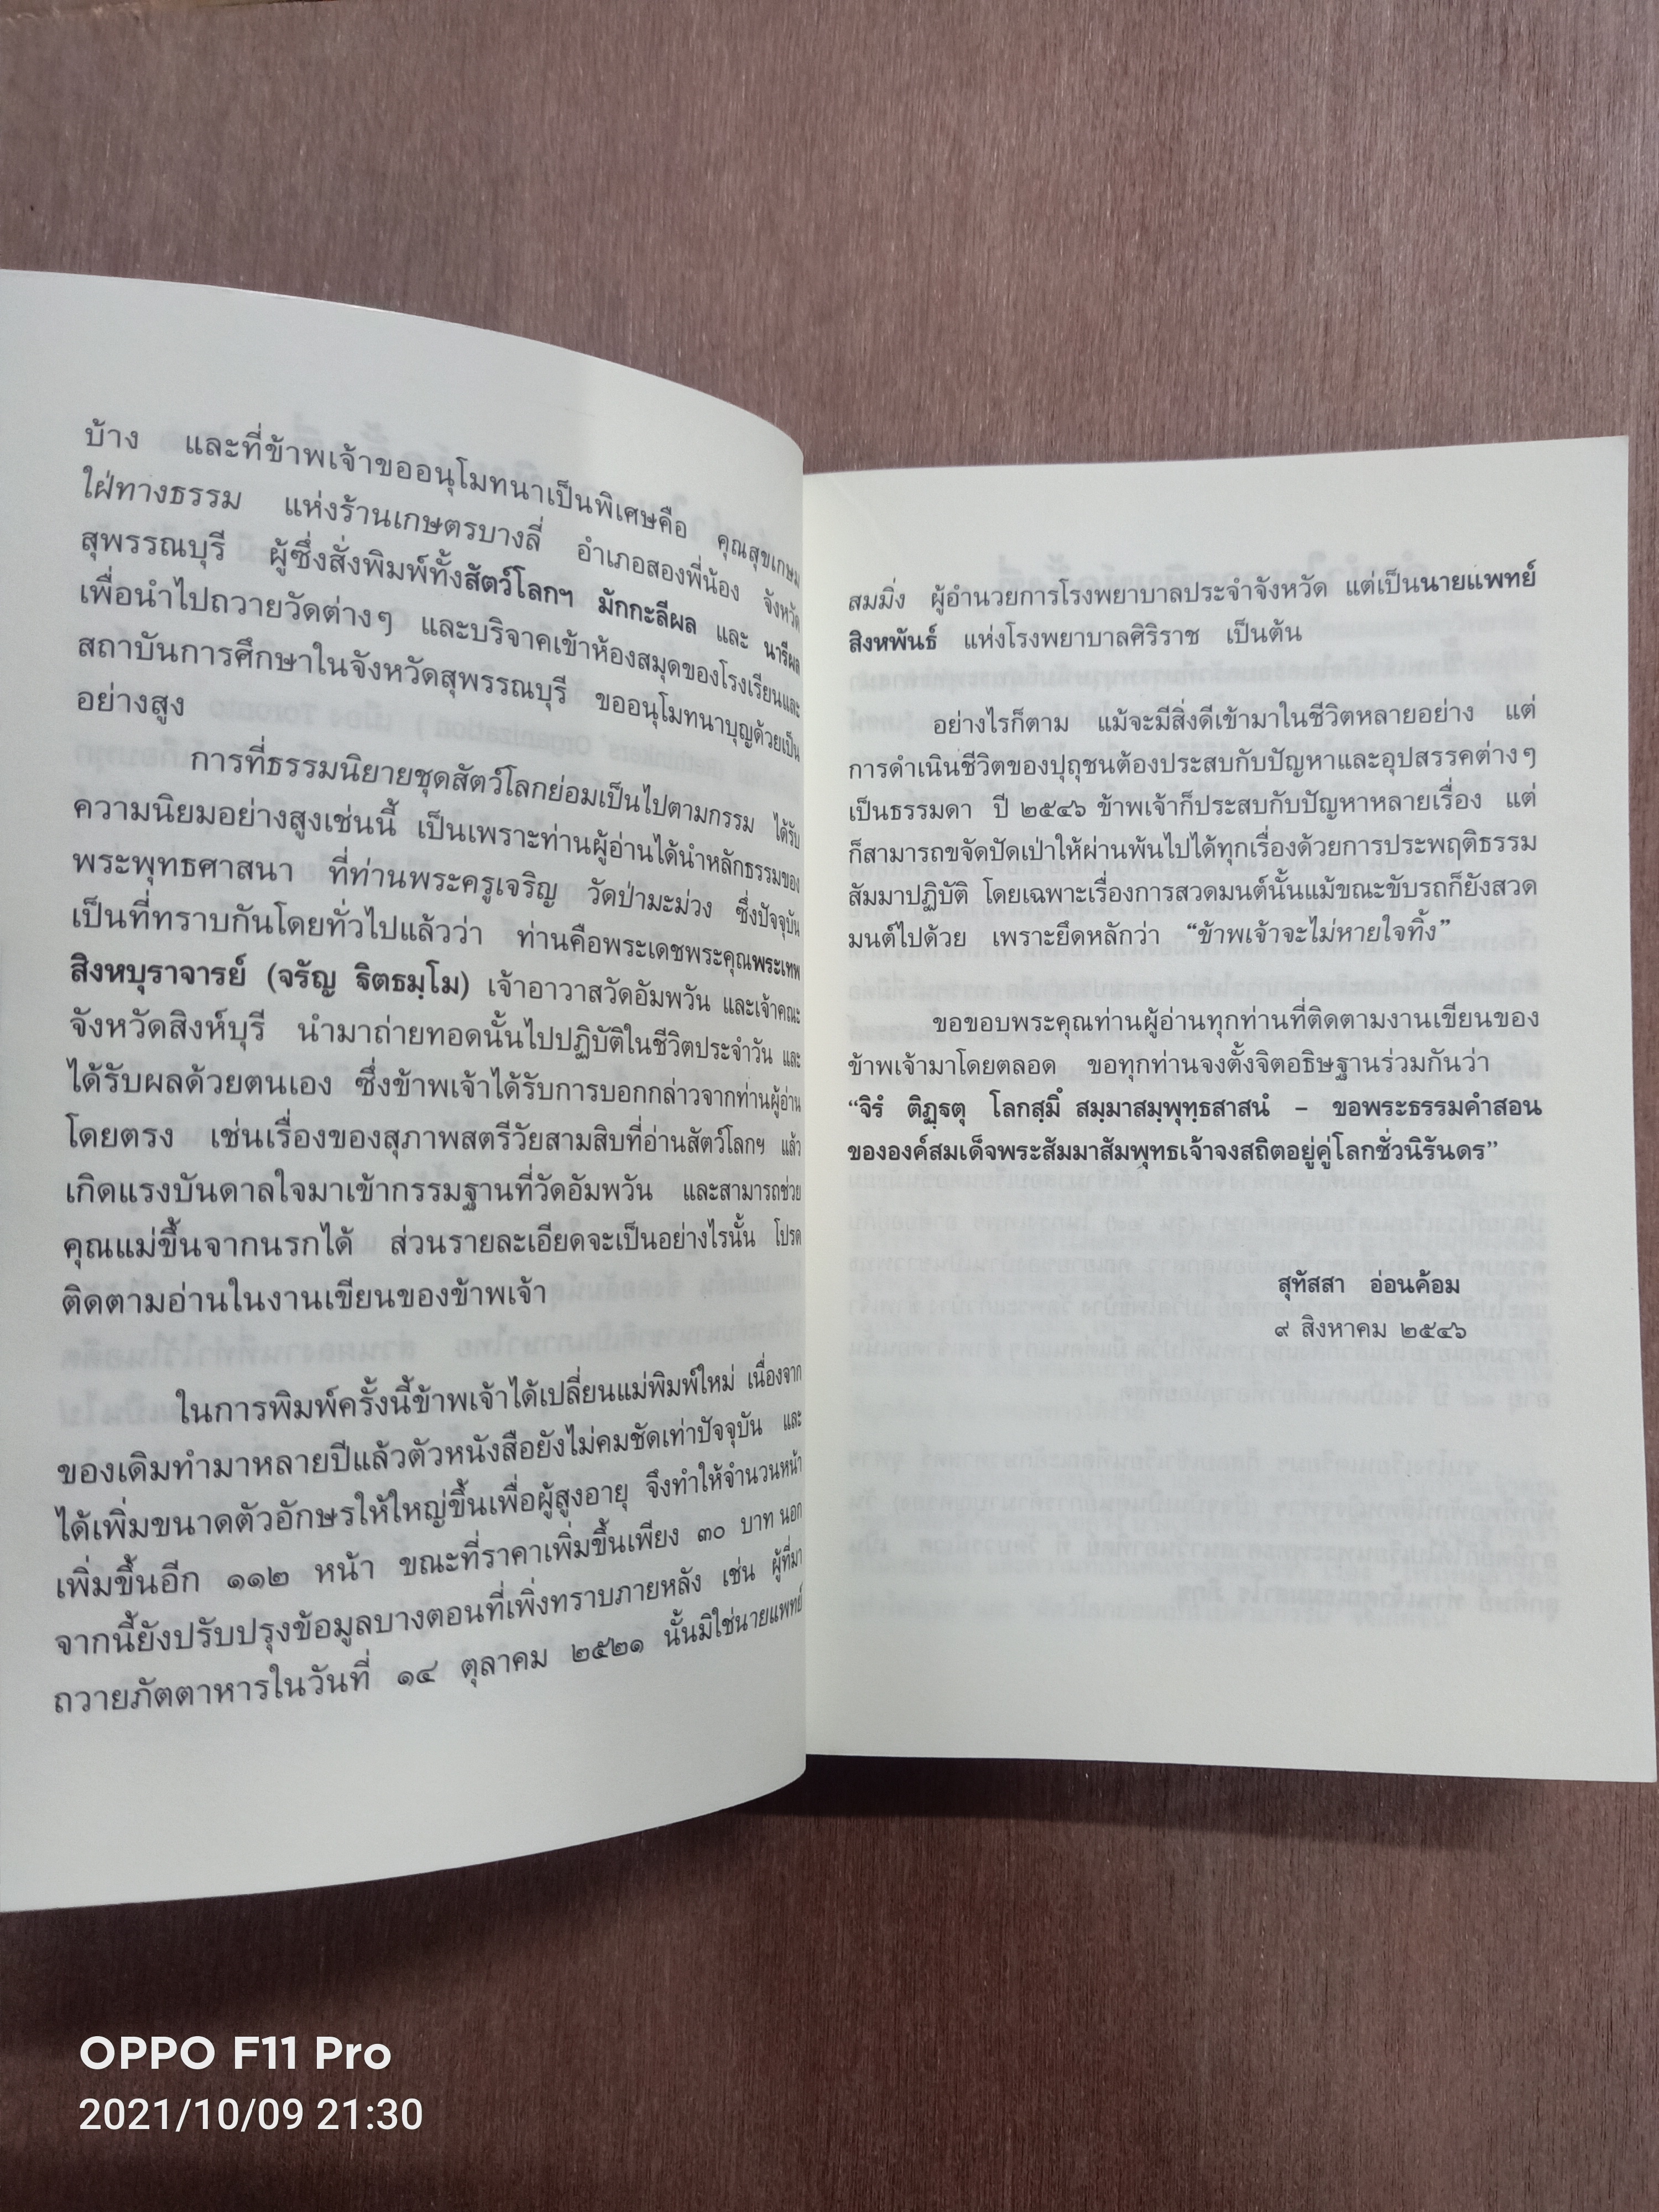 บ้าง และที่ข้าพเจ้าขออนุโมทนาเป็นพิเศษคือ คุณสุขเกษม
ใฝ่ทางธรรม แห่งร้านเกษตรบางลี่ อำเภอสองพี่น้อง จังหวัด
สุพรรณบุรี ผู้ซึ่งสั่งพิมพ์ทั้งสัตว์โลกฯ มักกะลีผล และ นารีผล
เพื่อนำไปถวายวัดต่างๆ และบริจาคเข้าห้องสมุดของโรงเรียนและ
สถาบันการศึกษาในจังหวัดสุพรรณบุรี ขออนุโมทนาบุญด้วยเป็น
อย่างสูง
การที่ธรรมนิยายชุดสัตว์โลกย่อมเป็นไปตามกรรม ได้รับ
ความนิยมอย่างสูงเช่นนี้ เป็นเพราะท่านผู้อ่านได้นำหลักธรรมของ
พระพุทธศาสนา ที่ท่านพระครูเจริญ วัดป่ามะม่วง ซึ่งปัจจุบัน
เป็นที่ทราบกันโดยทั่วไปแล้วว่า ท่านคือพระเดชพระคุณพระเทพ
สิงหบุราจารย์ (จรัญ ฐิตธมฺโม) เจ้าอาวาสวัดอัมพวัน และเจ้าคณะ
จังหวัดสิงห์บุรี นำมาถ่ายทอดนั้นไปปฏิบัติในชีวิตประจำวัน และ
ได้รับผลด้วยตนเอง ซึ่งข้าพเจ้าได้รับการบอกกล่าวจากท่านผู้อ่าน
โดยตรง เช่นเรื่องของสุภาพสตรีวัยสามสิบที่อ่านสัตว์โลกฯ แล้ว
เกิดแรงบันดาลใจมาเข้ากรรมฐานที่วัดอัมพวัน และสามารถช่วย
คุณแม่ขึ้นจากนรกได้ ส่วนรายละเอียดจะเป็นอย่างไรนั้น โปรด
ติดตามอ่านในงานเขียนของข้าพเจ้า
ในการพิมพ์ครั้งนี้ข้าพเจ้าได้เปลี่ยนแม่พิมพ์ใหม่ เนื่องจาก
ของเดิมทำมาหลายปีแล้วตัวหนังสือยังไม่คมชัดเท่าปัจจุบัน และ
ได้เพิ่มขนาดตัวอักษรให้ใหญ่ขึ้นเพื่อผู้สูงอายุ จึงทำให้จำนวนหน้า
เพิ่มขึ้นอีก ๑๑๒ หน้า ขณะที่ราคาเพิ่มขึ้นเพียง ๓๐ บาท นอก
จากนี้ยังปรับปรุงข้อมูลบางตอนที่เพิ่งทราบภายหลัง เช่น ผู้ที่มา
ถวายภัตตาหารในวันที่ ๑๔ ตุลาคม ๒๕๒๑ นั้นมิใช่นายแพทย์
สมมิ่ง ผู้อำนวยการโรงพยาบาลประจำจังหวัด แต่เป็นนายแพทย์
สิงหพันธ์ แห่งโรงพยาบาลศิริราช เป็นต้น
อย่างไรก็ตาม แม้จะมีสิ่งดีเข้ามาในชีวิตหลายอย่าง แต่
การดำเนินชีวิตของปุถุชนต้องประสบกับปัญหาและอุปสรรคต่างๆ
เป็นธรรมดา ปี ๒๕๔๖ ข้าพเจ้าก็ประสบกับปัญหาหลายเรื่อง แต่
ก็สามารถขจัดปัดเป่าให้ผ่านพ้นไปได้ทุกเรื่องด้วยการประพฤติธรรม
สัมมาปฏิบัติ โดยเฉพาะเรื่องการสวดมนต์นั้นแม้ขณะขับรถก็ยังสวด
มนต์ไปด้วย เพราะยึดหลักว่า “ข้าพเจ้าจะไม่หายใจทิ้ง”
ขอขอบพระคุณท่านผู้อ่านทุกท่านที่ติดตามงานเขียนของ
ข้าพเจ้ามาโดยตลอด ขอทุกท่านจงตั้งจิตอธิษฐานร่วมกันว่า
“จิรํ ติฏฺฐตุ โลกสฺมิํ สมฺมาสมฺพุทฺธสาสนํ – ขอพระธรรมคำสอน
ขององค์สมเด็จพระสัมมาสัมพุทธเจ้าจงสถิตอยู่คู่โลกชั่วนิรันดร”
สุทัสสา อ่อนค้อม
๙ สิงหาคม ๒๕๔๖
OPPO F11 Pro
2021/10/09 21:30